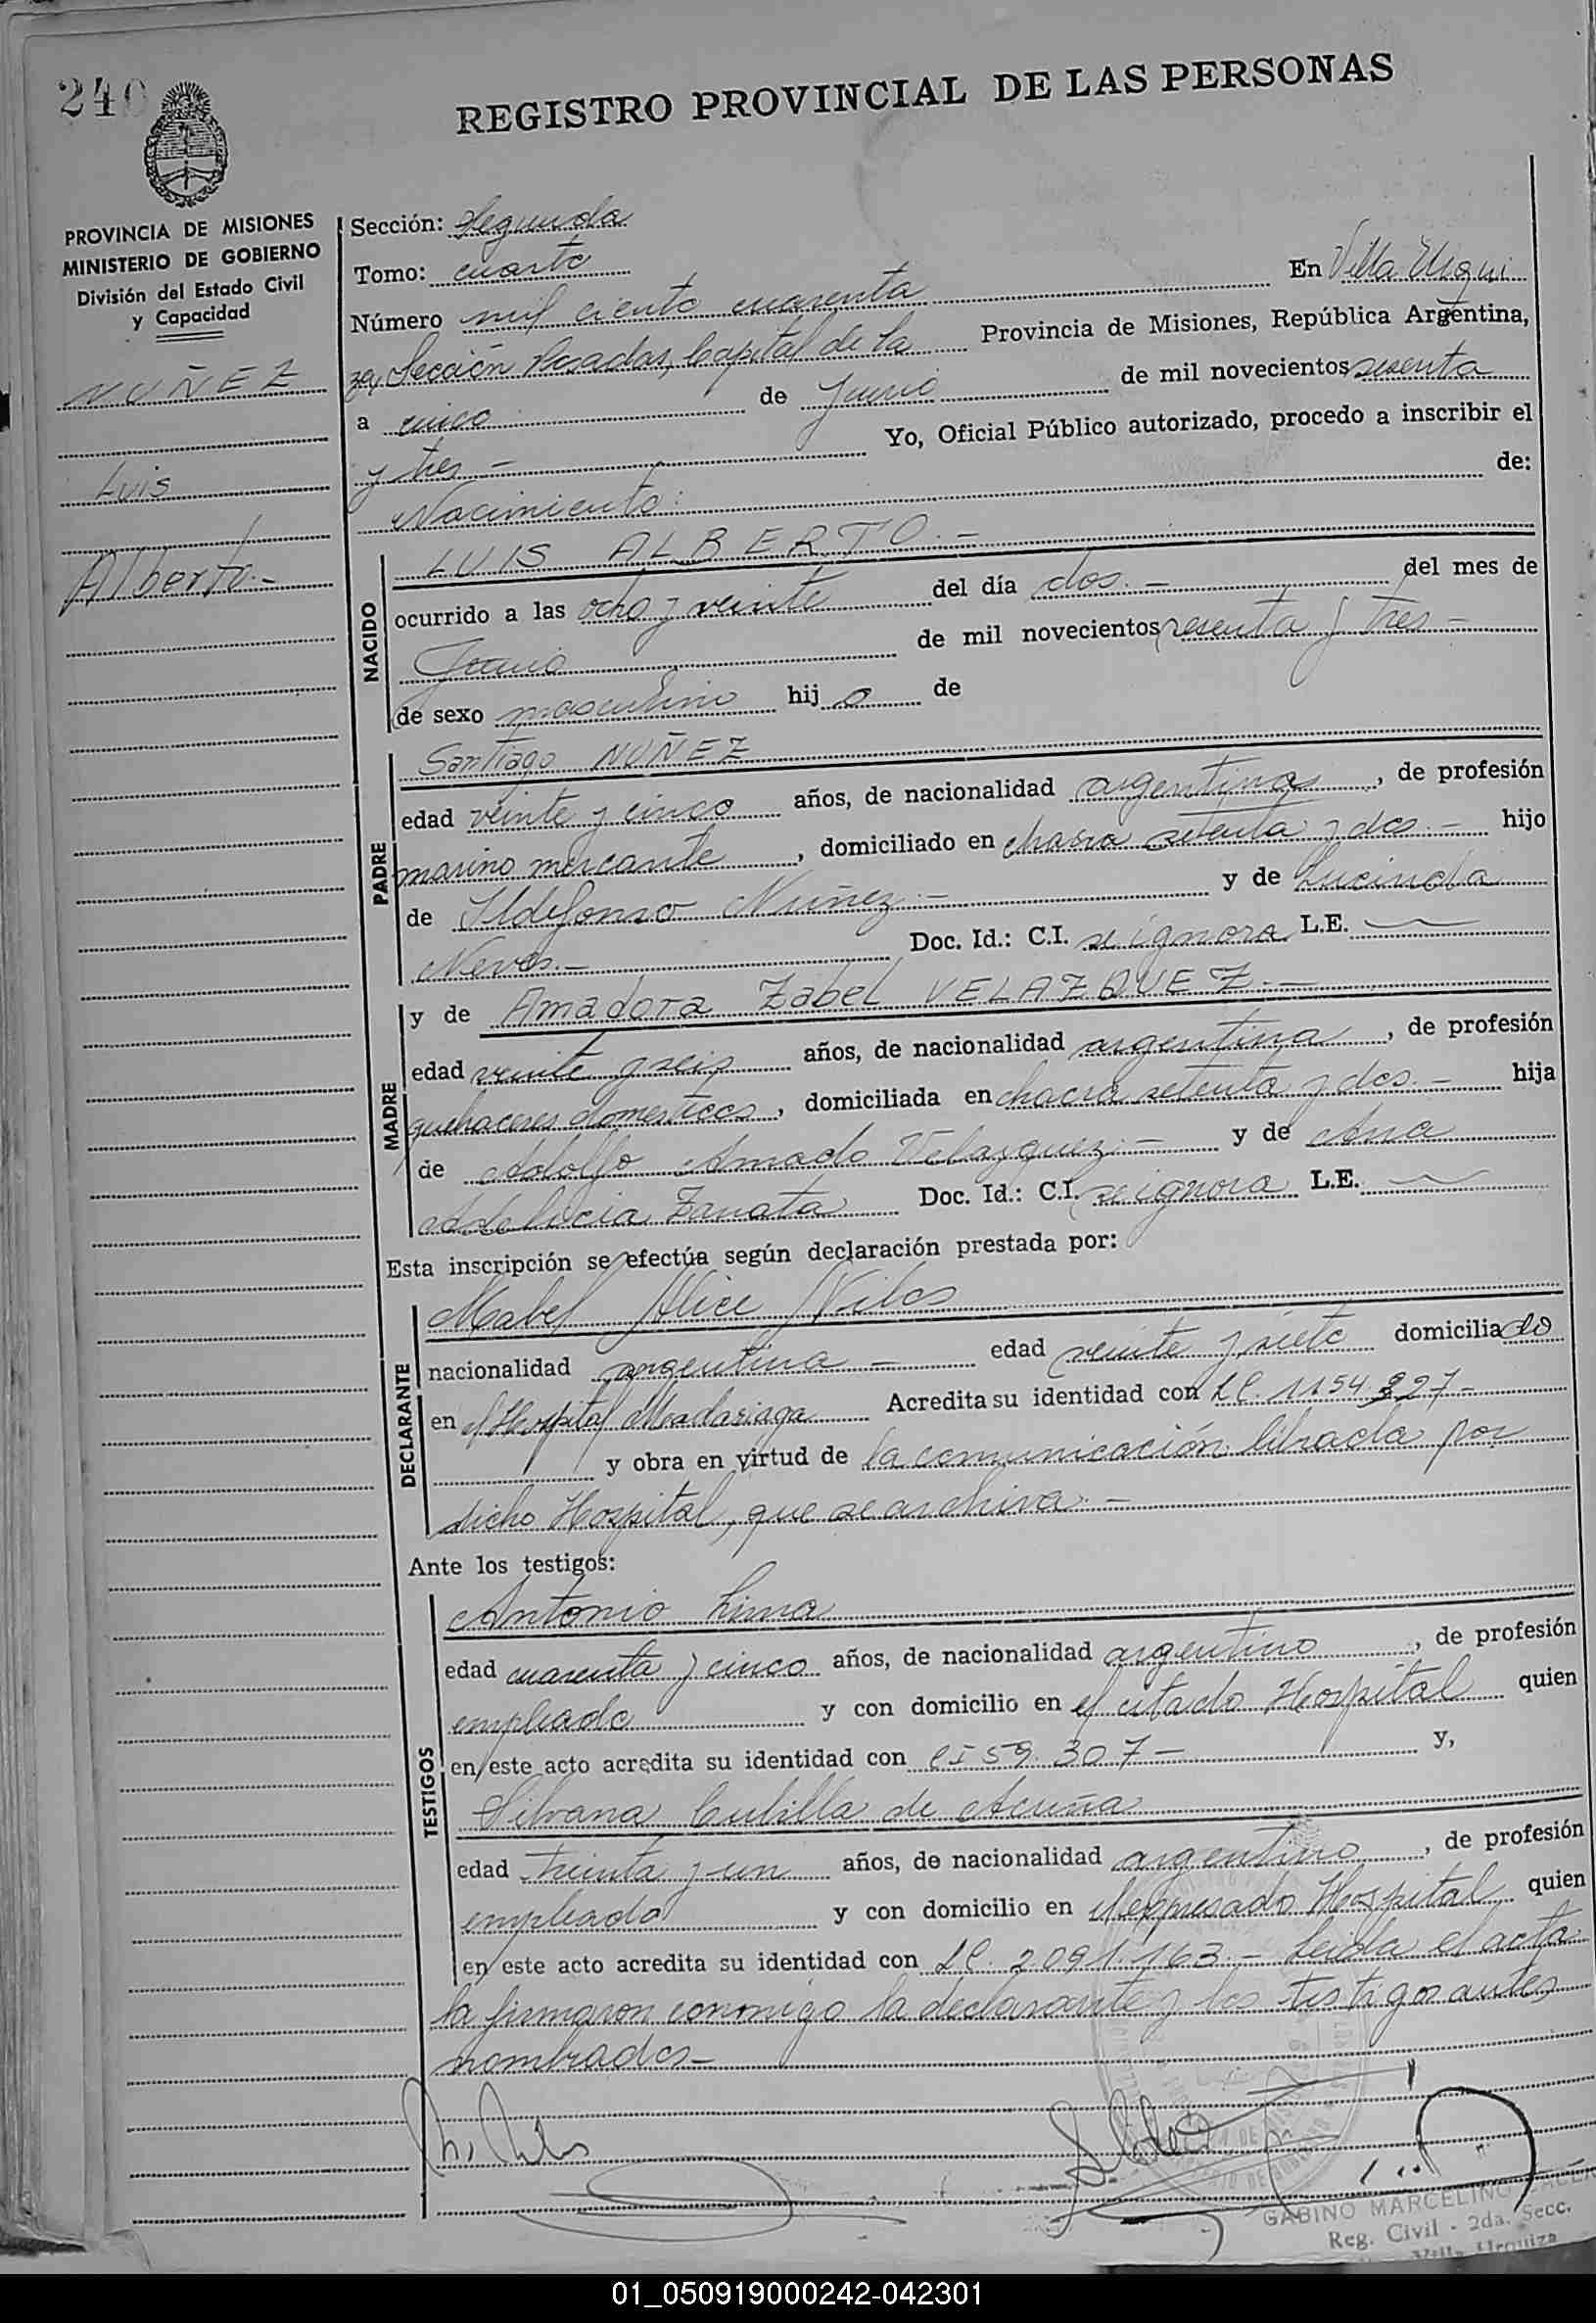 240
REGISTRO PROVINCIAL DE LAS PERSONAS
PROVINCIA DE MISIONES
MINISTERIO DE GOBIERNO
División del Estado Civil
y Capacidad
NUÑEZ
Luis
Alberto.-
Sección: Segunda
Tomo: cuarto
Número mil ciento cuarenta En Villa Urqui
za, Sección Posadas, Capital de la Provincia de Misiones, República Argentina,
a cinco de Junio de mil novecientos sesenta
y tres - Yo, Oficial Público autorizado, procedo a inscribir el
Nacimiento: de:
NACIDO
LUIS ALBERTO.-
ocurrido a las ocho y veinte del día dos.- del mes de
Junio de mil novecientos sesenta y tres -
de sexo masculino hijo de
PADRE
Santiago NUÑEZ
edad veinte y cinco años, de nacionalidad argentina, de profesión
marino mercante, domiciliado en chacra setenta y dos.- hijo
de Ildefonso Nuñez.- y de Lucinda
Neves.- Doc. Id.: C.I. se ignora L.E.
MADRE
y de Amadora Zabel VELAZQUEZ.-
edad veinte y seis años, de nacionalidad argentina, de profesión
quehaceres domesticos, domiciliada en chacra setenta y dos.- hija
de Adolfo Amado Velazquez.- y de Ana
Zanata Doc. Id.: C.I. se ignora L.E.
Esta inscripción se efectúa según declaración prestada por:
DECLARANTE
Mabel Alice Niles
nacionalidad argentina - edad veinte y siete domiciliado
en el Hospital Madariaga Acredita su identidad con LC. 1154.227-
y obra en virtud de la comunicación librada por
dicho Hospital, que se archiva.-
Ante los testigos:
TESTIGOS
Antonio Lima
edad cuarenta y cinco años, de nacionalidad argentino, de profesión
empleado y con domicilio en el citado Hospital quien
en este acto acredita su identidad con CI 59.307- y,
Silvana Cubilla de Acuña
edad treinta y un años, de nacionalidad argentino, de profesión
empleado y con domicilio en el expresado Hospital quien
en este acto acredita su identidad con LC. 2.091.163.- Leida el acta
la firmaron conmigo la declarante y los testigos antes
nombrados-
GABINO MARCELINO
Reg. Civil - 2da. Secc.
Villa Urquiza
01_050919000242-042301